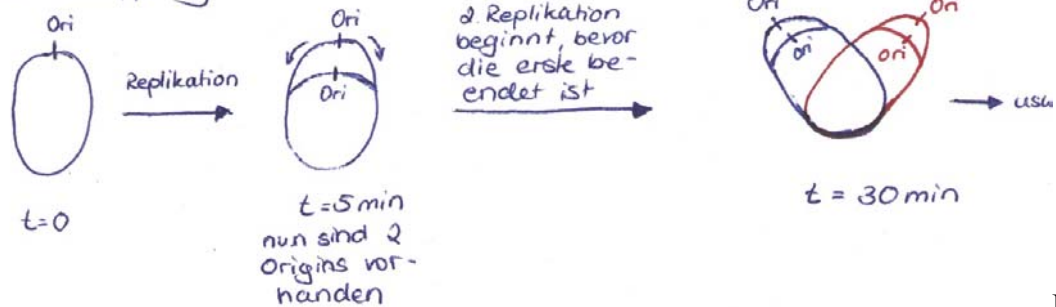 Ori
Replikation
t=0
Ori
Ori
t=5 min
nun sind 2
Origins vor-
handen
2. Replikation
beginnt, bevor
die erste be-
endet ist
Ori
ori
Ori
ori
t = 30 min
usw